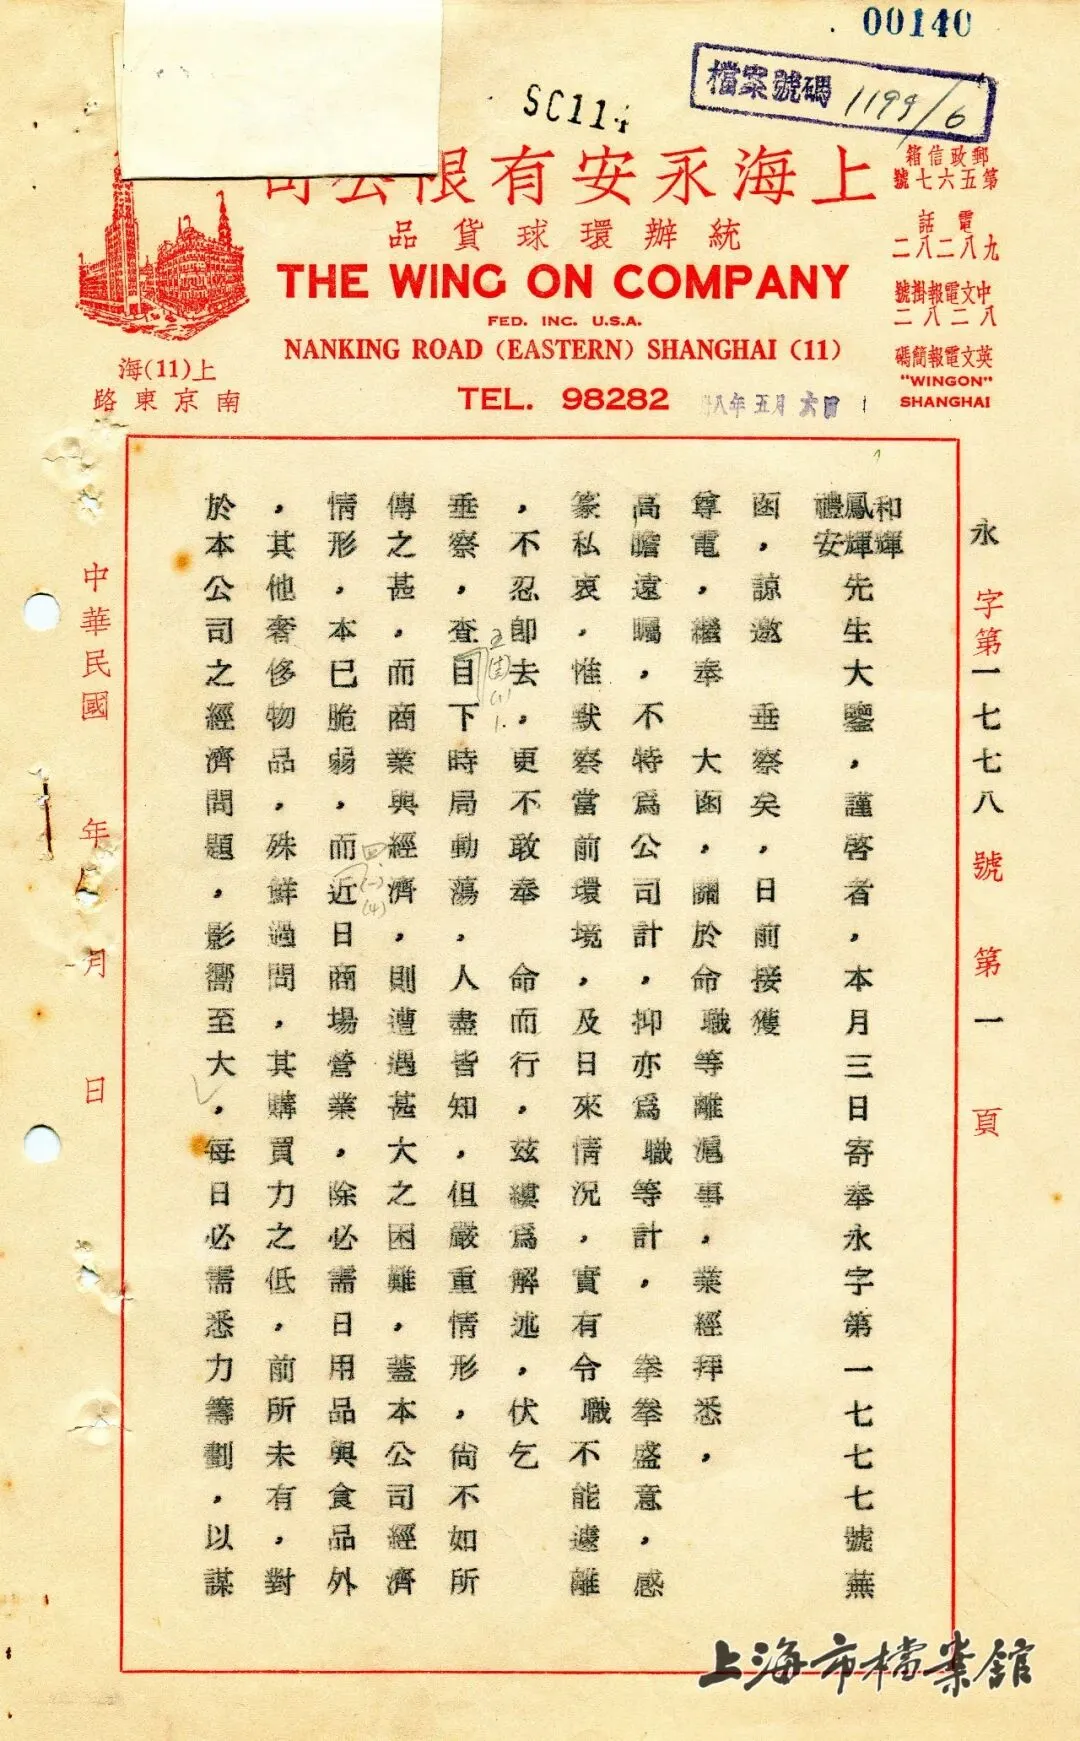 00140
SC114
檔案號碼 1199/6
上海永安有限公司
統辦環球貨品
THE WING ON COMPANY
FED. INC. U.S.A.
NANKING ROAD (EASTERN) SHANGHAI (11)
TEL. 98282
卅八年五月六日
郵政信箱
第五六七號
電話
九八二八二
中文電報掛號
八二八二
英文電報簡碼
"WINGON"
SHANGHAI
上(11)海
南京東路
永字第一七七八號第一頁
和輝
鳳輝先生大鑒，謹啓者，本月三日寄奉永字第一七七七號蕪
禮安
函，諒邀　垂察矣，日前接獲
尊電，繼奉　大函，關於命職等離滬事，業經拜悉，
高瞻遠矚，不特爲公司計，抑亦爲職等計，　拳拳盛意，感
篆私衷，惟默察當前環境，及日來情況，實有令職不能遽離
，不忍卽去，更不敢奉　命而行，玆縷爲解述，伏乞
垂察，查目下時局動蕩，人盡皆知，但嚴重情形，尙不如所
傳之甚，而商業與經濟，則遭遇甚大之困難，蓋本公司經濟
情形，本已脆弱，而近日商場營業，除必需日用品與食品外
，其他奢侈物品，殊鮮過問，其購買力之低，前所未有，對
於本公司之經濟問題，影響至大，每日必需悉力籌劃，以謀
中華民國　年　月　日
上海市檔案館